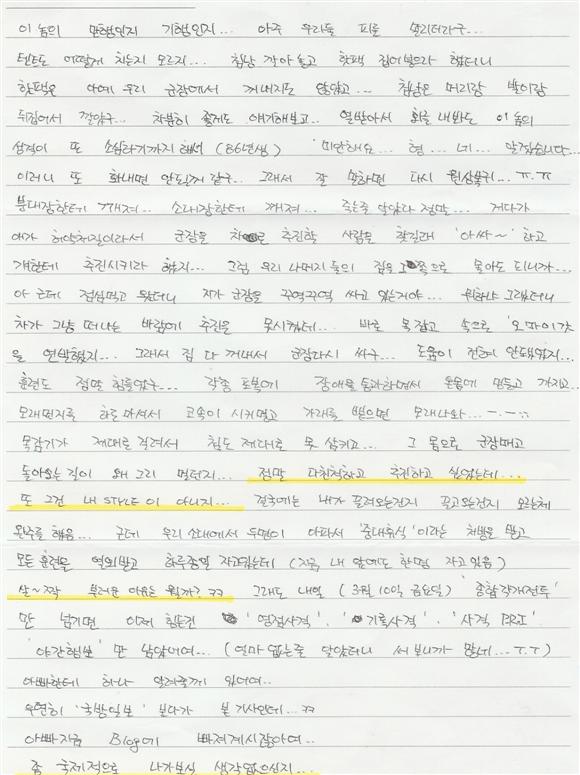 이 놈의 만행인지 기행인지... 아주 우리들 피를 말리더라구...
텐트도 어떻게 치는지 모르지... 침낭 깍아놓고 핫팩 집어넣으라 했더니
핫팩은 아예 우리 군장에서 꺼내지도 않았고... 침낭은 머리랑 발이랑
뒤집어서 깔았구... 차분히 좋게도 얘기해보고.. 열받아서 화를 내봐도 이 놈의
성격이 또 소심하기까지해서 (86년생) '미안해요.. 형... 네... 알겠습니다...
이러니 또 화내면 안되겠 같구... 그래서 잘 말하면 다시 원상복귀... ㅠ.ㅠ
분대장한테 깨져.. 소대장한테 깨져.. 죽는줄 알았다 정말... 게다가
얘가 허약체질이라서 군장을 차로 추진할 사람을 찾길래 '아싸~' 하고
걔한테 추진시키라 했지... 그럼 우리 나머지들의 짐을 그쪽으로 몰아도 되니까...
아 근데 점심먹고 왔더니 지가 군장을 꾸역꾸역 싸고 있는거야... 뭐하냐 그랬더니
차가 그냥 떠나는 바람에 추진을 못시켰데... 바로 목잡고 속으로 '오 마이갓'
을 연발했지... 그래서 짐 다 꺼내서 군장다시 싸구... 도움이 전혀 안되었지...
훈련도 정말 힘들었구... 각종 포복에 장애물 통과하면서 온몸에 멍들고 까지고...
모래먼지를 하도 마셔서 코속이 시커멓고 가래를 뱉으면 모래나와... ㅡ.ㅡ;;
목감기가 제대로 걸려서 침도 제대로 못 삼키고... 그 몸으로 군장메고
돌아오는 길이 왜 그리 멀던지... 정말 다친척하고 추진하고 싶었는데...
또 그건 내 STYLE이 아니지... 결국에는 내가 끌려오는건지 끌고오는건지 모르는체
완주를 했음... 근데 우리 소대에서 두명이 아파서 '중대휴식' 이라는 처방을 받고
모든 훈련을 열외받고 하루종일 자고있는데 (지금 내 앞에도 한명 자고 있음)
살~짝 부러운 이유는 뭘까? ㅋㅋ 그래도 내일 (3월 10일 금요일) '종합각개전투'
만 넘기면 이제 힘든건 '영점사격', '기록사격', '사격 PRI',
'야간행보' 만 남았어여... (얼마 없는줄 알았더니 써보니까 많네... ㅜ.ㅜ)
아빠한테 하나 알려줄께 있어여..
우연히 '국방일보' 보다가 본 기사인데... ㅋㅋ
아빠지금 Blog에 빠져계시잖아여...
좀 국제적으로 나가보실 생각없으신지...